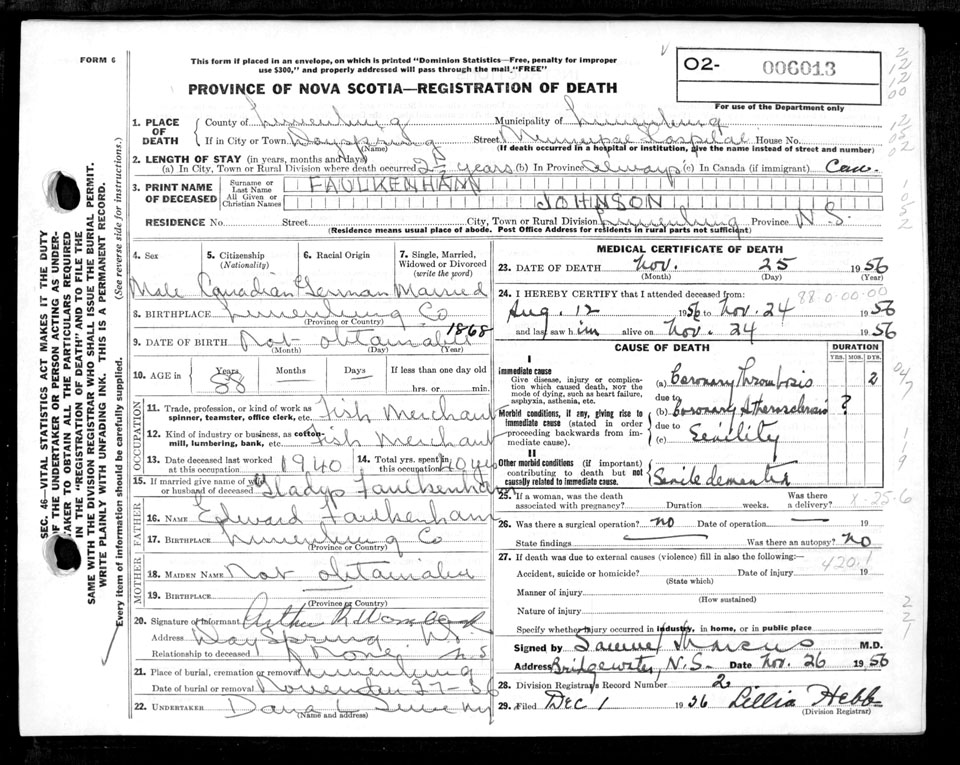 FORM 6
This form if placed in an envelope, on which is printed "Dominion Statistics—Free, penalty for improper
use $300," and properly addressed will pass through the mail "FREE"
PROVINCE OF NOVA SCOTIA—REGISTRATION OF DEATH
02- 006013
For use of the Department only
1. PLACE OF DEATH County of Lunenburg Municipality of Lunenburg
If in City or Town Dayspring (Name) Street Municipal Hospital House No.
(If death occurred in a hospital or institution, give the name instead of street and number)
2. LENGTH OF STAY (in years, months and days)
(a) In City, Town or Rural Division where death occurred 2 1/2 years (b) In Province always (c) In Canada (if immigrant) Can.
3. PRINT NAME OF DECEASED Surname or Last Name FAULKENHAM
All Given or Christian Names JOHNSON
RESIDENCE No. Street City, Town or Rural Division Lunenburg Province N.S.
(Residence means usual place of abode. Post Office Address for residents in rural parts not sufficient)
SEC. 46—VITAL STATISTICS ACT MAKES IT THE DUTY
OF THE UNDERTAKER OR PERSON ACTING AS UNDER-
TAKER TO OBTAIN ALL THE PARTICULARS REQUIRED
IN THE "REGISTRATION OF DEATH" AND TO FILE THE
SAME WITH THE DIVISION REGISTRAR WHO SHALL ISSUE THE BURIAL PERMIT.
WRITE PLAINLY WITH UNFADING INK. THIS IS A PERMANENT RECORD.
Every item of information should be carefully supplied. (See reverse side for instructions.)
4. Sex 5. Citizenship (Nationality) 6. Racial Origin 7. Single, Married, Widowed or Divorced (write the word)
Male Canadian German Married
8. BIRTHPLACE Lunenburg Co
(Province or Country)
9. DATE OF BIRTH Not obtainable 1868
(Month) (Day) (Year)
10. AGE in Years 88 Months — Days — If less than one day old hrs. or min.
OCCUPATION
11. Trade, profession, or kind of work as spinner, teamster, office clerk, etc. Fish Merchant
12. Kind of industry or business, as cotton-mill, lumbering, bank, etc. Fish Merchant
13. Date deceased last worked at this occupation 1940 14. Total yrs. spent in this occupation 40 yrs
15. If married give name of wife or husband of deceased Gladys Faulkenham
FATHER
16. NAME Edward Faulkenham
17. BIRTHPLACE Lunenburg Co
(Province or Country)
MOTHER
18. MAIDEN NAME Not obtainable
19. BIRTHPLACE
(Province or Country)
20. Signature of informant Arthur R
Address Dayspring N.S.
Relationship to deceased None N S
21. Place of burial, cremation or removal Lunenburg
Date of burial or removal November 27-56
22. UNDERTAKER Dana L
(Name and address)
MEDICAL CERTIFICATE OF DEATH
23. DATE OF DEATH Nov. 25 1956
(Month) (Day)
24. I HEREBY CERTIFY that I attended deceased from: 88-0-00-00
Aug. 12 1956 to Nov. 24 1956
and last saw him alive on Nov. 24 1956
CAUSE OF DEATH DURATION
YRS. MOS. DYS.
I
Immediate cause
Give disease, injury or complication which caused death, NOT the mode of dying, such as heart failure, asphyxia, asthenia, etc.
(a) Coronary Thrombosis 2
due to
Morbid conditions, if any, giving rise to immediate cause (stated in order proceeding backwards from immediate cause).
(b) Coronary Atherosclerosis ?
due to
(c) Senility
II
Other morbid conditions (if important) contributing to death but not causally related to immediate cause.
Senile demented
25. If a woman, was the death associated with pregnancy? Duration weeks. Was there a delivery? —
X-25-6
26. Was there a surgical operation? no Date of operation — 19
State findings Was there an autopsy? no
27. If death was due to external causes (violence) fill in also the following:-
420.1
Accident, suicide or homicide? Date of injury 19
(State which)
Manner of injury
(How sustained)
Nature of injury
Specify whether injury occurred in industry, in home, or in public place
Signed by Samuel Marcus M.D.
Address Bridgewater, N.S. Date Nov. 26 1956
28. Division Registrar's Record Number 2
29. Filed Dec 1 1956 Lillia Hebb
(Division Registrar)